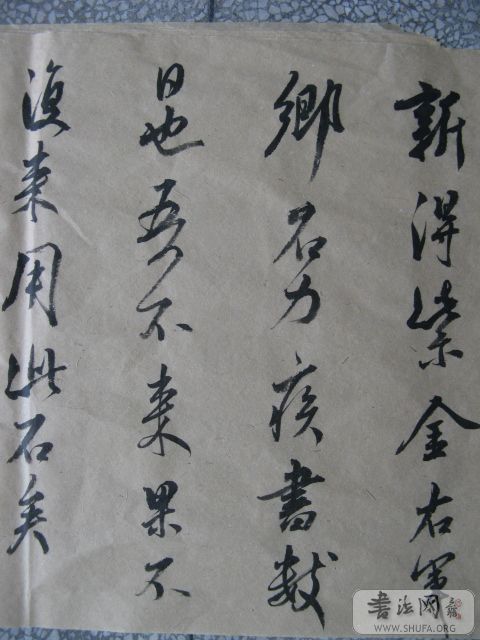 新得紫金右軍
鄉石力疾書數
日也吾不來果不
復來用此石矣
書法网
WWW.SHUFA.ORG